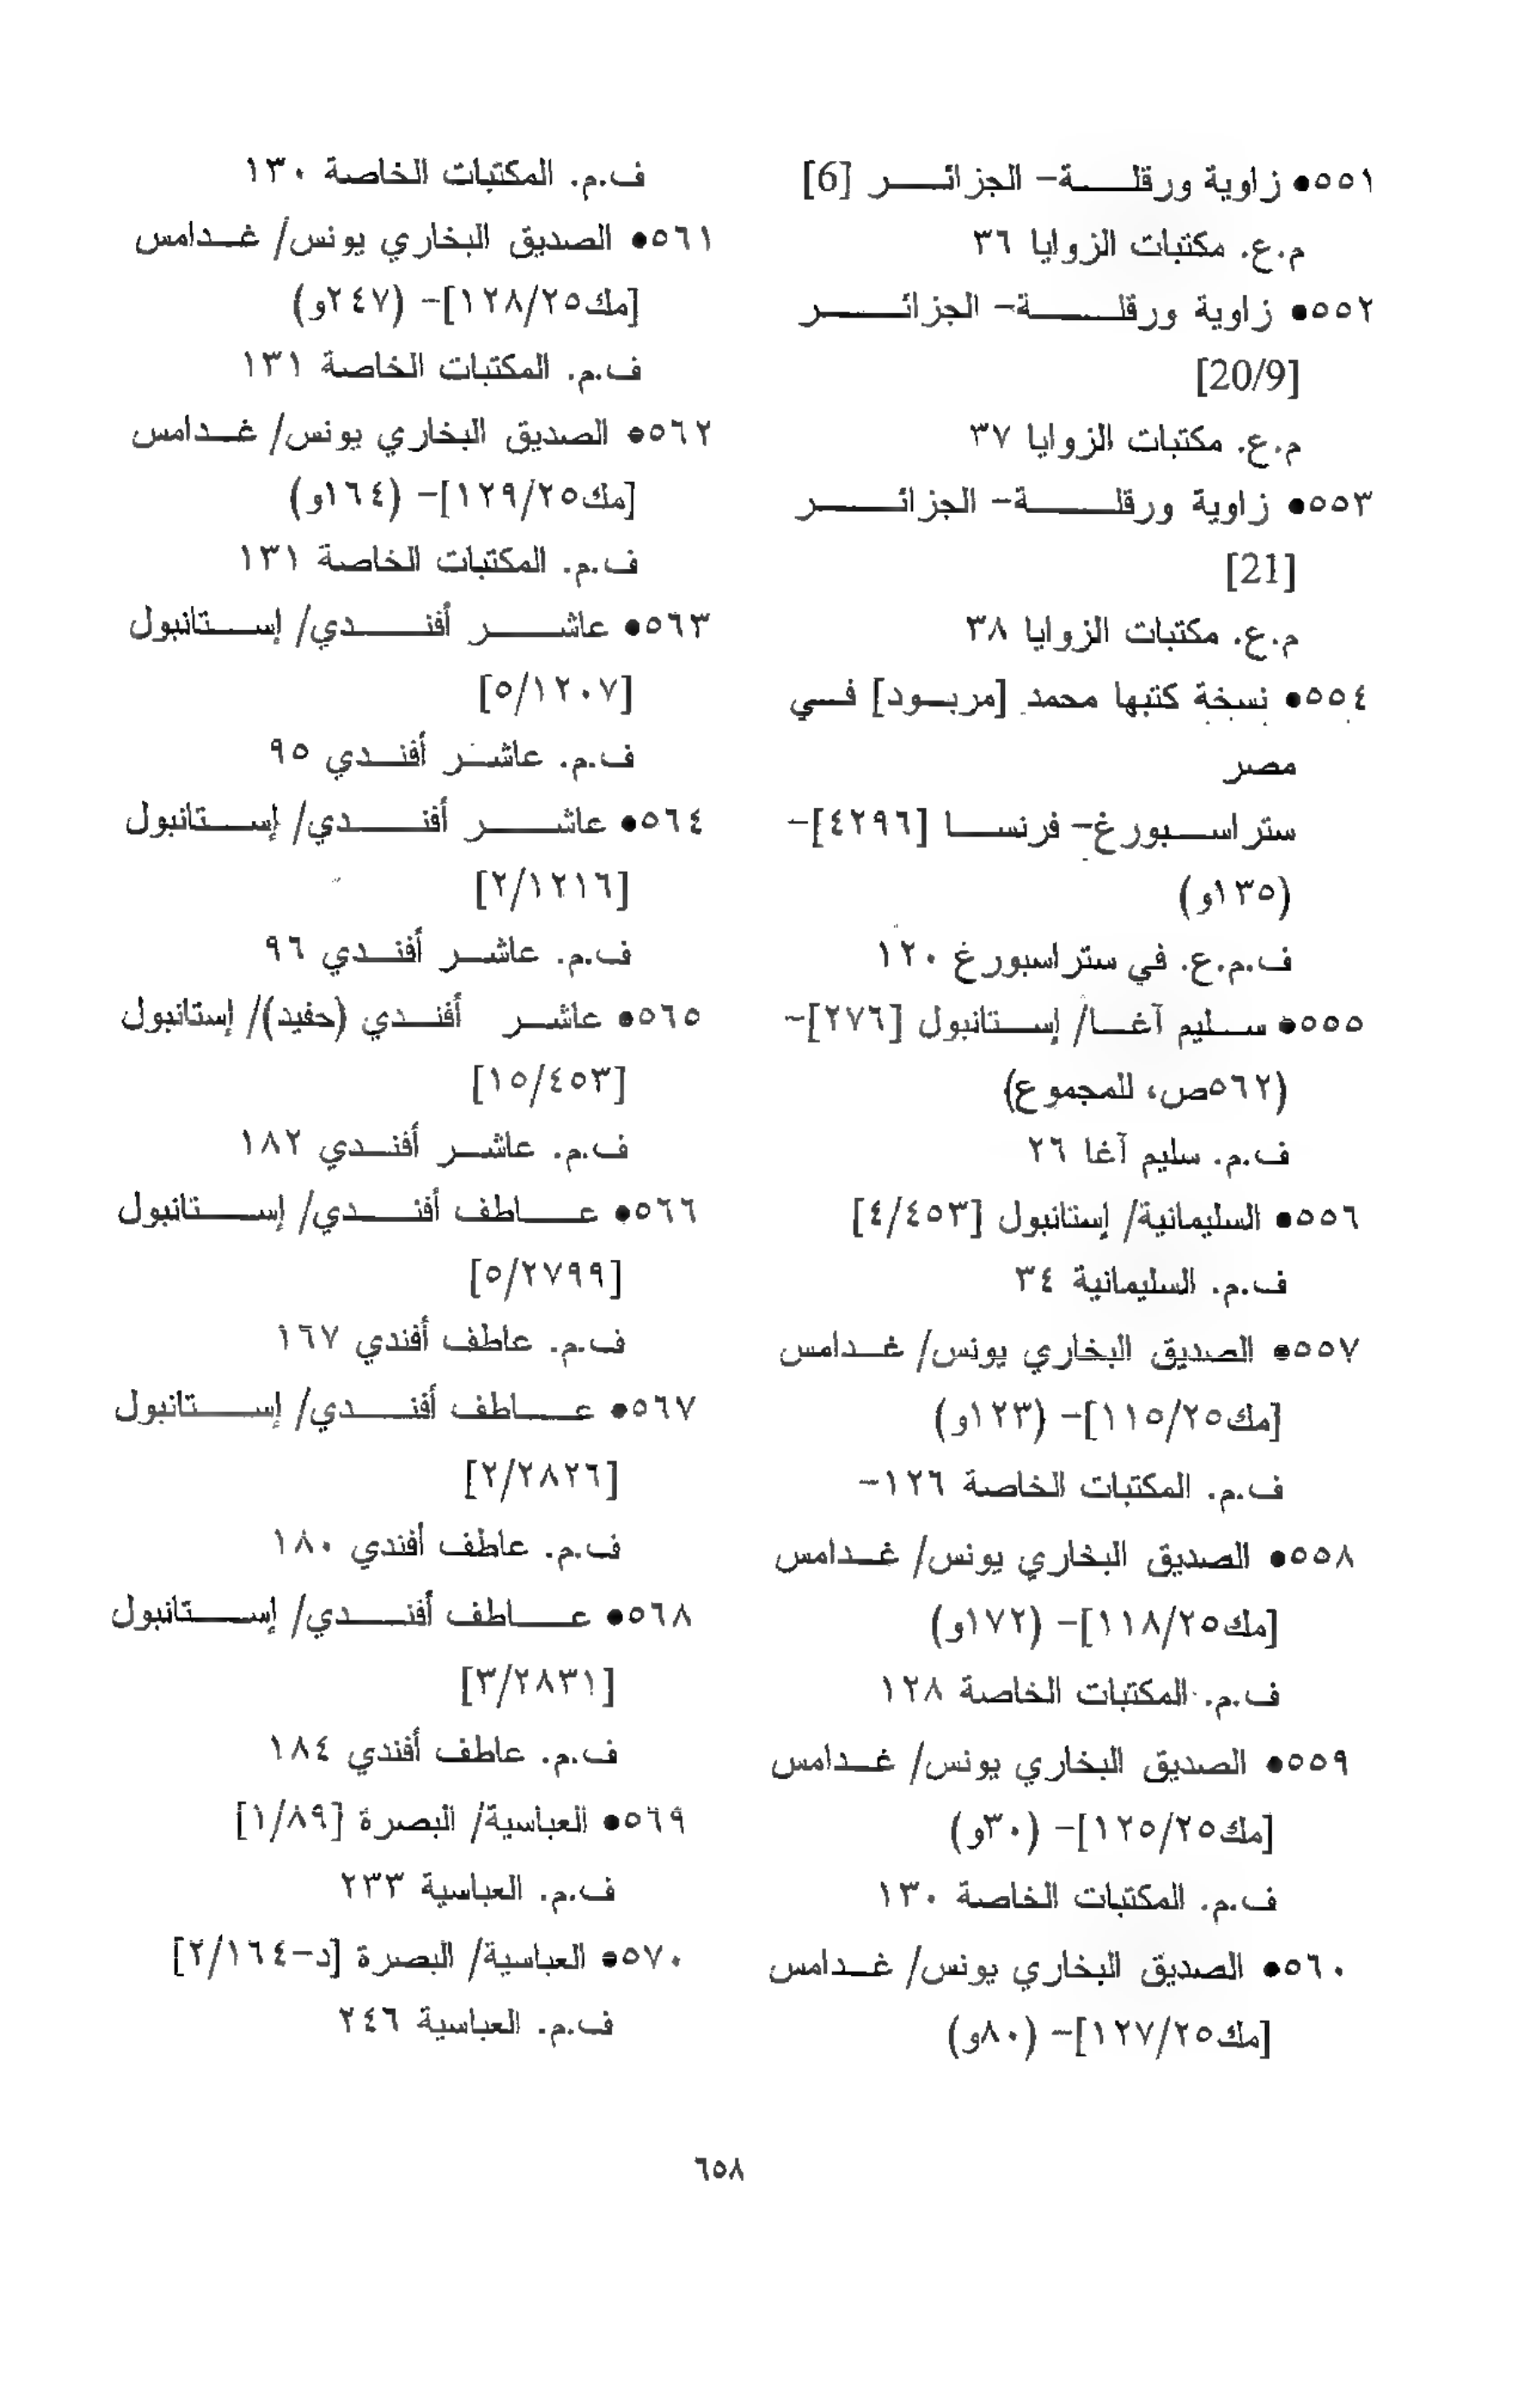 ٥٥١● زاوية ورقلة- الجزائر [6]
م.ع. مكتبات الزوايا ٣٦
٥٥٢● زاوية ورقلة- الجزائر
[20/9]
م.ع. مكتبات الزوايا ٣٧
٥٥٣● زاوية ورقلة- الجزائر
[21]
م.ع. مكتبات الزوايا ٣٨
٥٥٤● نسخة كتبها محمد [مربود] في
مصر
ستراسبورغ- فرنسا [٤٢٩٦]-
(١٣٥و)
ف.م.ع. في ستراسبورغ ١٢٠
٥٥٥● سليم آغا/ إستانبول [٢٧٦]-
(٥٦٢ص، للمجموع)
ف.م. سليم آغا ٢٦
٥٥٦● السليمانية/ إستانبول [٤/٤٥٣]
ف.م. السليمانية ٣٤
٥٥٧● الصديق البخاري يونس/ غدامس
[مك١١٥/٢٥]- (١٢٣و)
ف.م. المكتبات الخاصة ١٢٦-
٥٥٨● الصديق البخاري يونس/ غدامس
[مك١١٨/٢٥]- (١٧٢و)
ف.م. المكتبات الخاصة ١٢٨
٥٥٩● الصديق البخاري يونس/ غدامس
[مك١٢٥/٢٥]- (٣٠و)
ف.م. المكتبات الخاصة ١٣٠
٥٦٠● الصديق البخاري يونس/ غدامس
[مك١٢٧/٢٥]- (٨٠و)
ف.م. المكتبات الخاصة ١٣٠
٥٦١● الصديق البخاري يونس/ غدامس
[مك١٢٨/٢٥]- (٢٤٧و)
ف.م. المكتبات الخاصة ١٣١
٥٦٢● الصديق البخاري يونس/ غدامس
[مك١٢٩/٢٥]- (١٦٤و)
ف.م. المكتبات الخاصة ١٣١
٥٦٣● عاشر أفندي/ إستانبول
[٥/١٢٠٧]
ف.م. عاشر أفندي ٩٥
٥٦٤● عاشر أفندي/ إستانبول
[٢/١٢١٦]
ف.م. عاشر أفندي ٩٦
٥٦٥● عاشر أفندي (حفيد)/ إستانبول
[١٥/٤٥٣]
ف.م. عاشر أفندي ١٨٢
٥٦٦● عاطف أفندي/ إستانبول
[٥/٢٧٩٩]
ف.م. عاطف أفندي ١٦٧
٥٦٧● عاطف أفندي/ إستانبول
[٢/٢٨٢٦]
ف.م. عاطف أفندي ١٨٠
٥٦٨● عاطف أفندي/ إستانبول
[٣/٢٨٣١]
ف.م. عاطف أفندي ١٨٤
٥٦٩● العباسية/ البصرة [١/٨٩]
ف.م. العباسية ٢٣٣
٥٧٠● العباسية/ البصرة [د-٢/١٦٤]
ف.م. العباسية ٢٤٦
٦٥٨